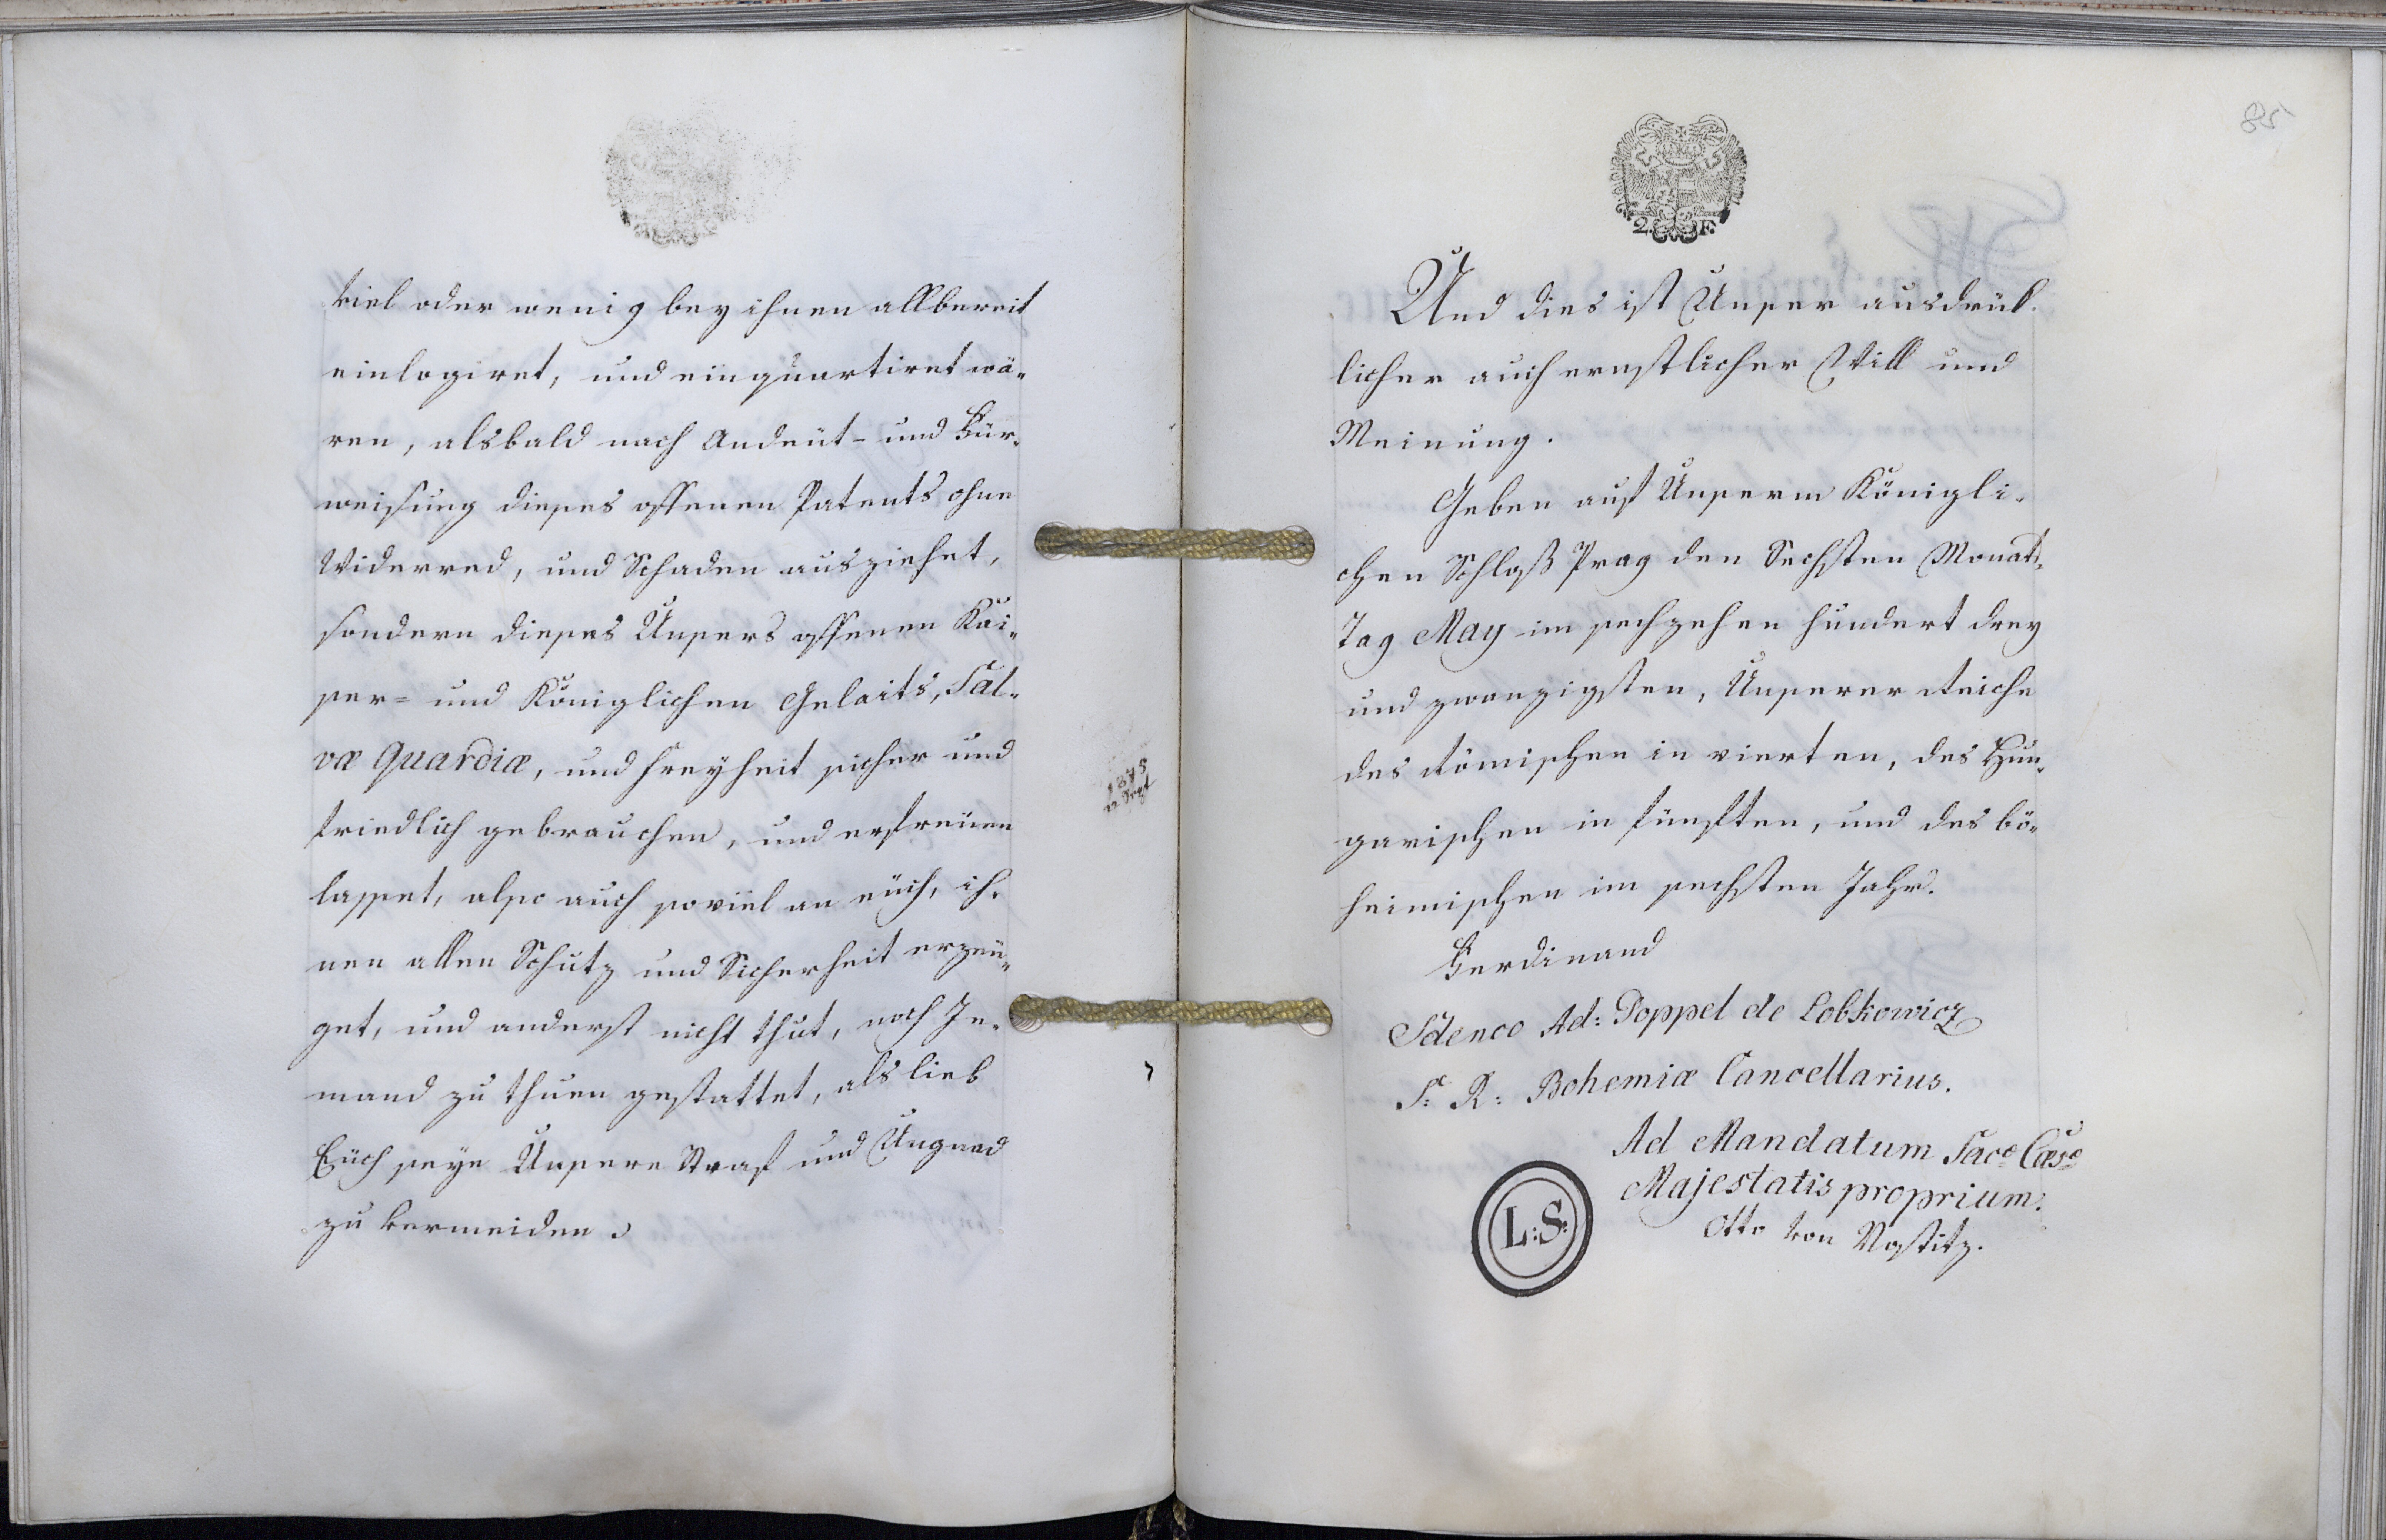 viel oder wenig bey ihnen allbereit
einlogiret, und einquartiret wä-
ren, alsbald nach Andeut- und Für-
weisung dieses offenen Patents ohne
Widerred, und Schaden ausziehet,
sondern dieses Unsers offenen Kai-
ser- und Königlichen Gelaits, Sal-
væ Quardiæ, und Freyheit sicher und
friedlich gebrauchen, und erfreuen
lasset, also auch soviel an euch, ih-
nen allen Schutz und Sicherheit erzeü-
get, und anderst nicht thut, noch Je-
mand zu thuen gestattet, als lieb
Euch seye Unsere Straf und Ungnad
zu vermeiden.
85
2. F.
Und dies ist Unser ausdrük-
licher auch ernstlicher Will und
Meinung.
Geben auf Unserm Königli-
chen Schloß Prag den Sechsten Monats-
Tag May im sechzehen hundert drey
und zwanzigsten, Unserer Reiche
des Römischen in vierten, des Hun-
garischen in fünften, und des bö-
heimischen im sechsten Jahr.
Ferdinand
Sdenco Ad: Poppel de Lobkowicz
S: R: Bohemiæ Cancellarius.
Ad Mandatum Sacæ Cæsæ
Majestatis proprium.
Otto von Nostitz.
L:S: